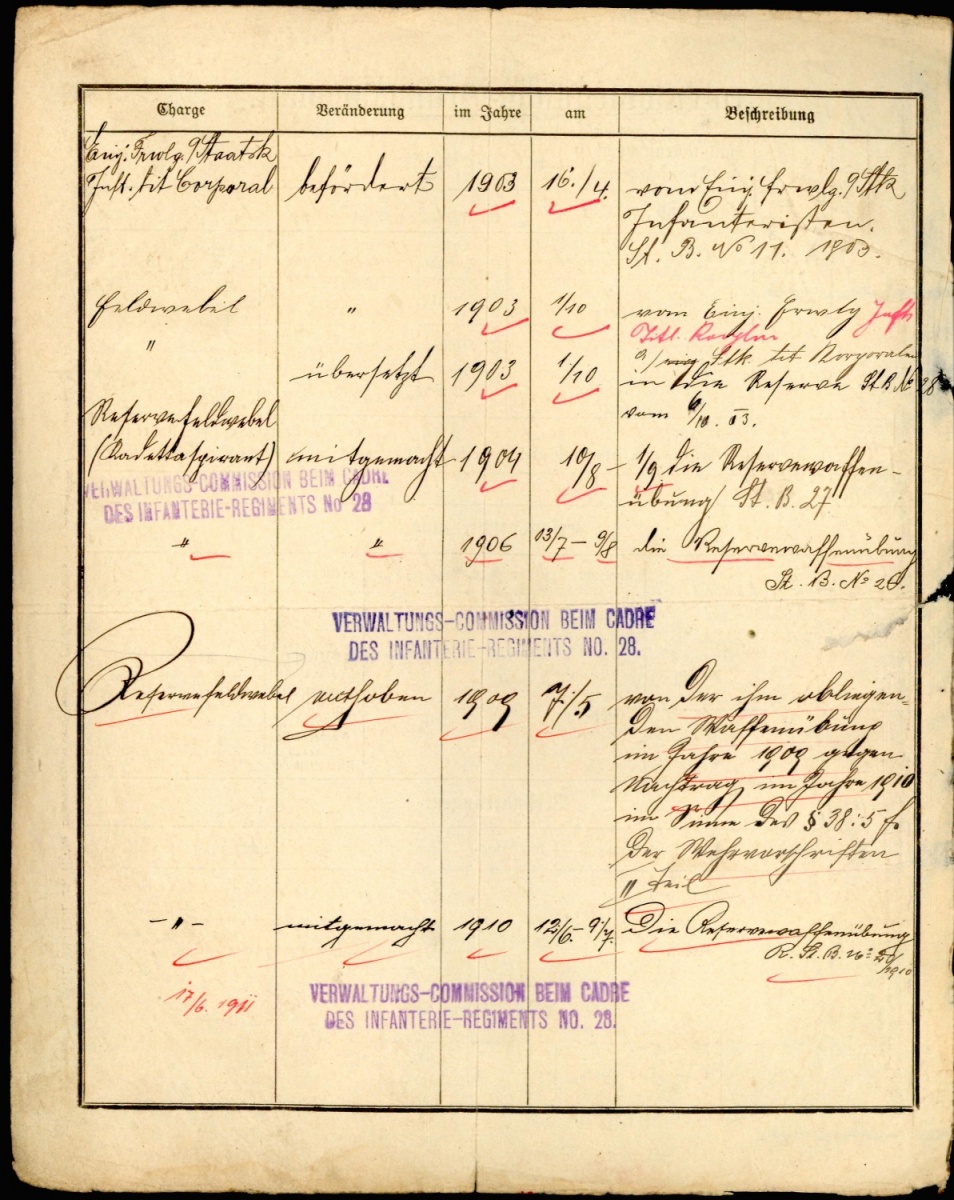 Charge Veränderung im Jahre am Beschreibung
Einj. Frwlg. Staatsk
Inft. tit Corporal befördert 1903 16./4. vom Einj. frwlg. Stk
Infanteristen.
St. B. No 11. 1903.
Feldwebel " 1903 1/10 vom Einj. Frwlg Inft.
Titl. Korplen
" Stk. tit Korporalen
übersetzt 1903 1/10 in die Reserve St.B. No 28
vom 6/10. 03.
Reservefeldwebel
(Kadettaspirant) mitgemacht 1904 10/8 – 1/9 die Reservewaffen-
übung St. B. 27
VERWALTUNGS-COMMISSION BEIM CADRE
DES INFANTERIE-REGIMENTS No 28
" " 1906 13/7 – 9/8 die Reservewaffenübung
St. B. No 20.
VERWALTUNGS-COMMISSION BEIM CADRE
DES INFANTERIE-REGIMENTS NO. 28.
Reservefeldwebel enthoben 1909 7./5 von der ihm obliegen=
den Waffenübung
im Jahre 1909 gegen
Nachtrag im Jahre 1910
im Sinne des § 38:5 f.
der Wehrvorschriften
II Teil
–"– mitgemacht 1910 12/6.– 9/7. Die Reservewaffenübung
R. St. B. No
1910
17/6. 1911
VERWALTUNGS-COMMISSION BEIM CADRE
DES INFANTERIE-REGIMENTS NO. 28.